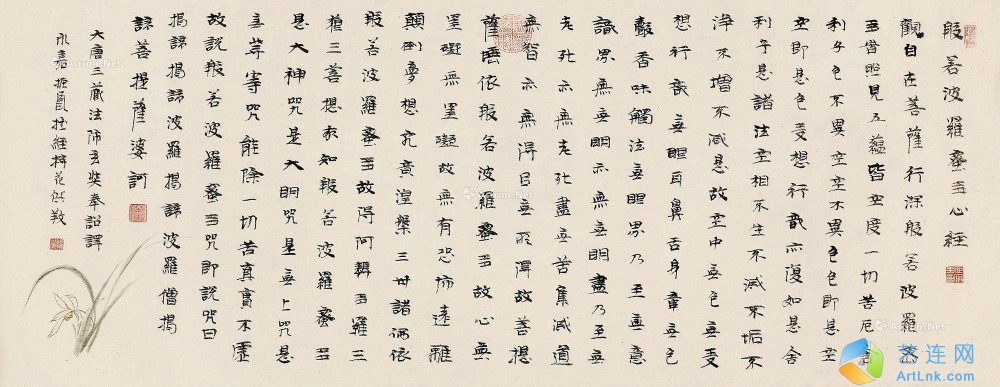 般若波羅蜜多心經
觀自在菩薩行深般若波羅蜜
多時照見五蘊皆空度一切苦厄舍
利子色不異空空不異色色即是空
空即是色受想行識亦復如是舍
利子是諸法空相不生不滅不垢不
淨不增不減是故空中無色無受
想行識無眼耳鼻舌身意無色
聲香味觸法無眼界乃至無意
識界無無明亦無無明盡乃至無
老死亦無老死盡無苦集滅道
無智亦無得㠯無所得故菩提
薩埵依般若波羅蜜多故心無
罣礙無罣礙故無有恐怖遠離
顛倒夢想究竟涅槃三世諸佛依
般若波羅蜜多故得阿耨多羅三
藐三菩提故知般若波羅蜜多
是大神咒是大明咒是無上咒是
無等等咒能除一切苦真實不虛
故說般若波羅蜜多咒即說咒曰
揭諦揭諦波羅揭諦波羅僧揭
諦菩提薩婆訶
大唐三藏法師玄奘奉詔譯
永嘉
艺连网
ArtLnk.com